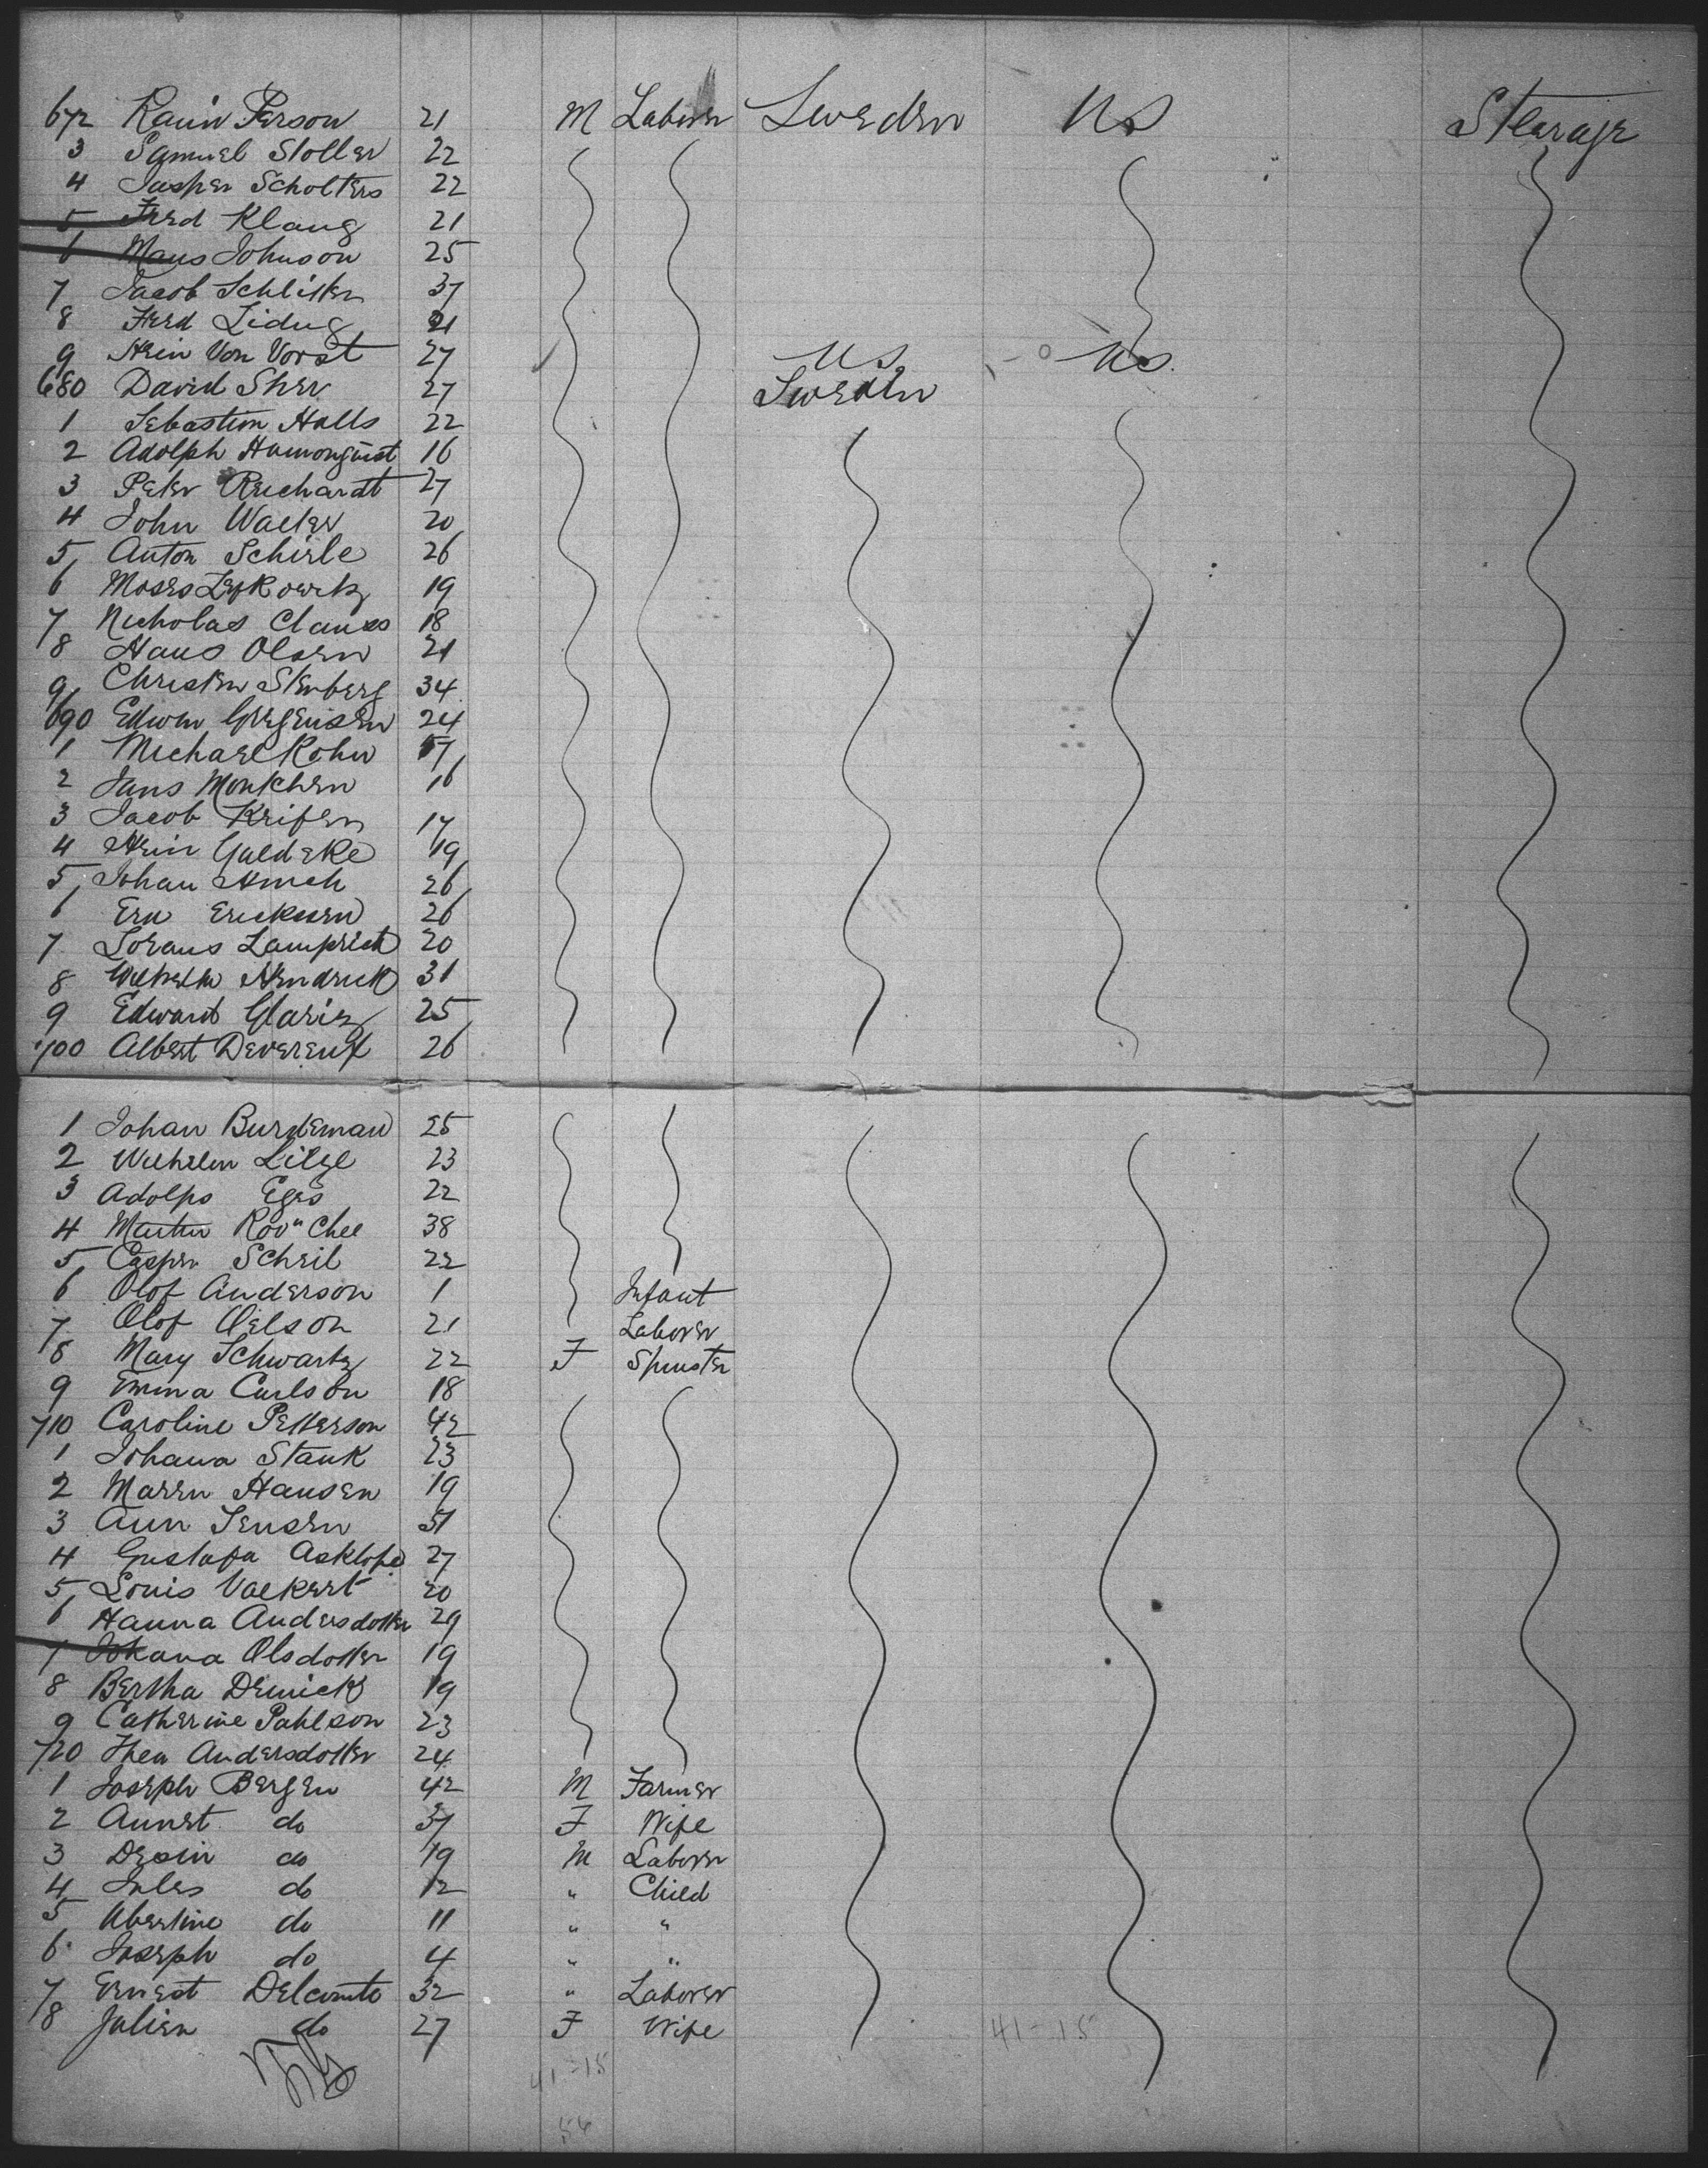 672 Karin Person 21 M Laborer Sweden US Stearage
3 Samuel Stoller 22
4 Jasper Scholters 22
5 Fred Klang 21
6 Mans Johnson 25
7 Jacob Schlitter 37
8 Fred Lidug 21
9 Hein Von Vorst 27 US US.
680 David Sherr 27 Sweden
1 Sebastian Halls 22
2 Adolph Hamonquist 16
3 Peter Reichardt 27
4 John Walter 20
5 Anton Schirle 26
6 Moses 19
7 Nicholas Clauss 18
8 Hans Olsen 21
9 Christen Stenberg 34
690 Edwin Gregensen 24
1 Michael Kohn 17
2 Jans Monkhen 16
3 Jacob Kreifen 17
4 Hein Guldeke 19
5 Johan 26
6 Ern Ericksen 26
7 Lorans Lamprich 20
8 Wilhelm Hendrick 31
9 Edward Glariz 25
700 Albert Devereux 26
1 Johan Burdeman 25
2 Wilhelm Liege 23
3 Adolps Eges 22
4 Martin Rov" Chee 38
5 Casper Scheil 22
6 Olof Anderson 1 Infant
7 Olof Oelson 21 Laborer
8 Mary Schwartz 22 F Spinster
9 Emma Carlson 18
710 Caroline Petterson 42
1 Johana Stank 23
2 Maren Hansen 19
3 Ann Jensen 51
4 Gustafa 27
5 Louis Valkert 20
6 Hanna Andersdotter 29
7 Johana Olsdotter 19
8 Bertha Demick 19
9 Catherine Pahlson 23
720 Thea Andersdotter 24
1 Joseph Bergen 42 M Farmer
2 Annet do 37 F Wife
3 Desin do 19 M Laborer
4 Jules do 12 " Child
5 Albertine do 11 " "
6 Joseph do 4 " "
7 Ernest Delcomte 32 " Laborer
8 Julien do 27 F Wife 41-15
41-15
56